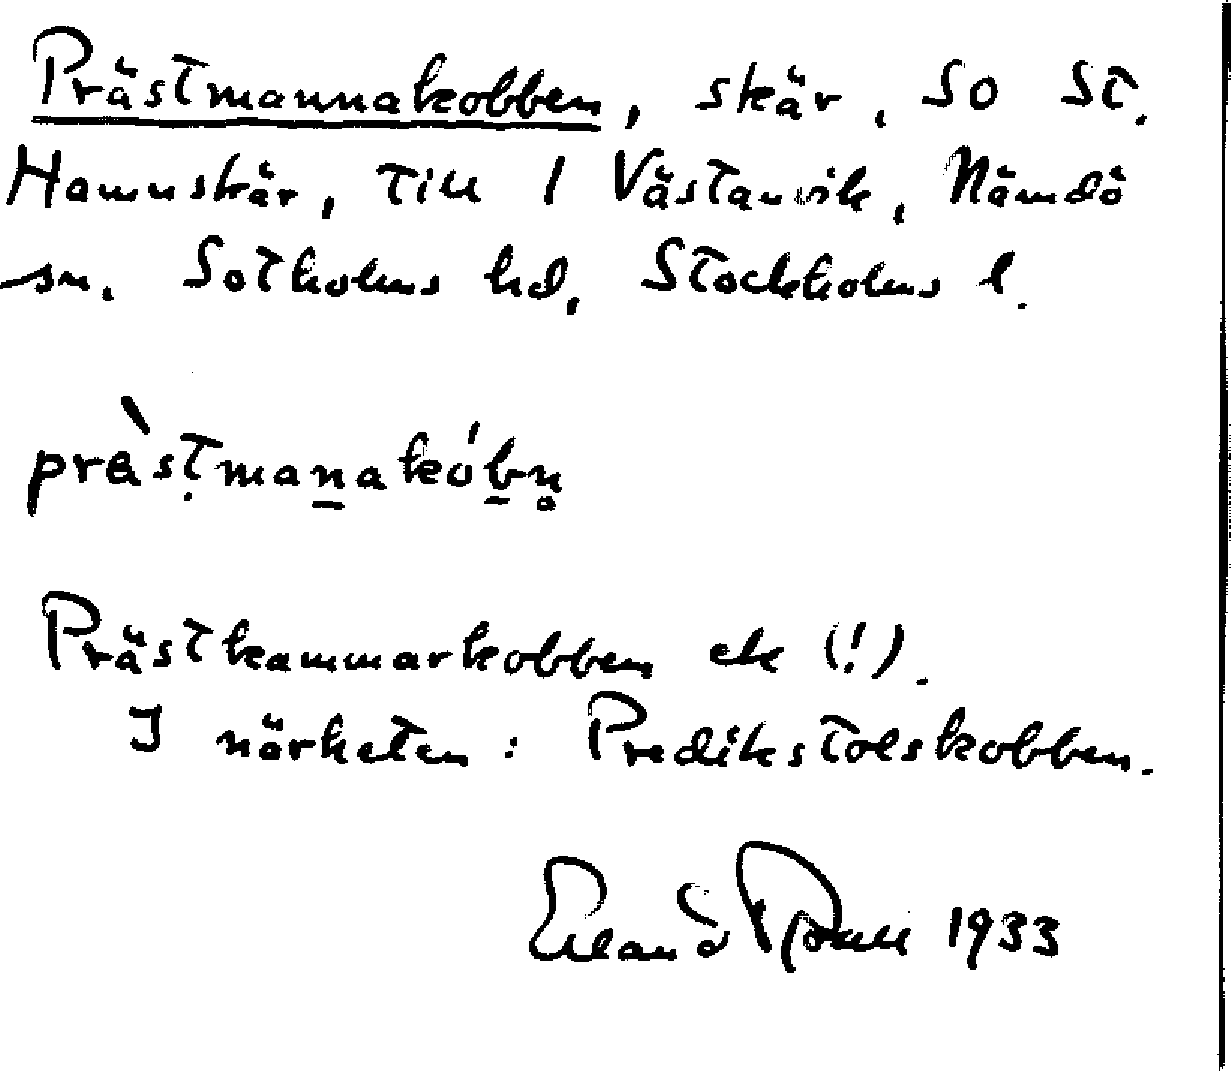 Prästmannakobben, skär, SO St.
Hamnskär, till 1 Västanvik, Nämdö
sn. Sotholms hd, Stockholms l.
pràstmanakóbn̥
Prästkammarkobben ek (!).
I närheten: Predikstolskobben.
1933